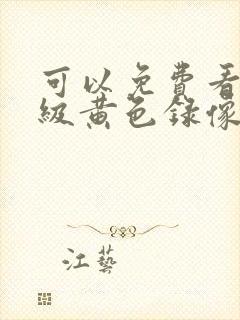 可以免費看
級黄色録像
江藝